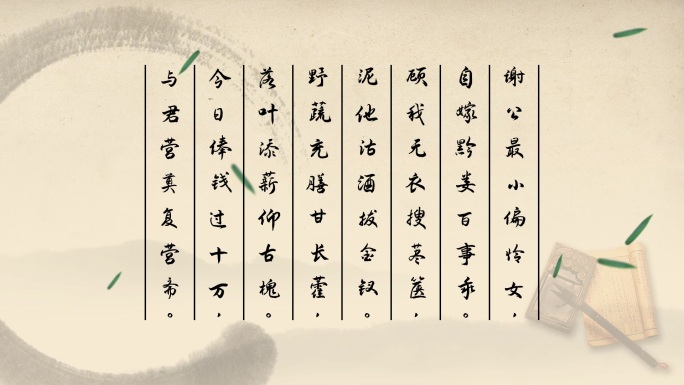 谢公最小偏怜女，
自嫁黔娄百事乖。
顾我无衣搜荩箧，
泥他沽酒拔金钗。
野蔬充膳甘长藿，
落叶添薪仰古槐。
今日俸钱过十万，
与君营奠复营斋。